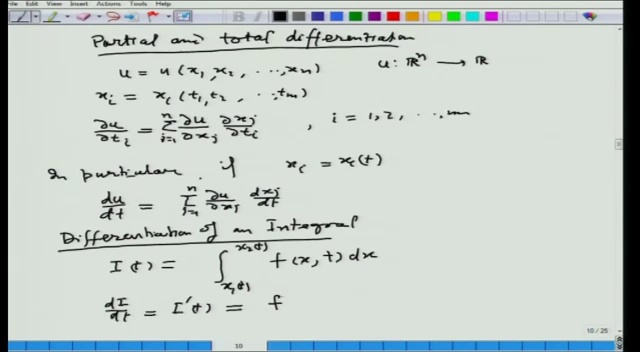 File Edit View Insert Actions Tools Help
Partial and total differentiation
u = u(x₁, x₂, ..., xₙ) u: ℝⁿ → ℝ
xᵢ = xᵢ(t₁, t₂, ..., tₘ)
∂u/∂tᵢ = Σⁿⱼ₌₁ ∂u/∂xⱼ ∂xⱼ/∂tᵢ , i = 1, 2, ..., m
In particular, if xᵢ = xᵢ(t)
du/dt = Σⁿⱼ₌₁ ∂u/∂xⱼ dxⱼ/dt
Differentiation of an Integral
I(t) = ∫_{x₁(t)}^{x₂(t)} f(x, t) dx
dI/dt = I'(t) = f
10 / 25
10